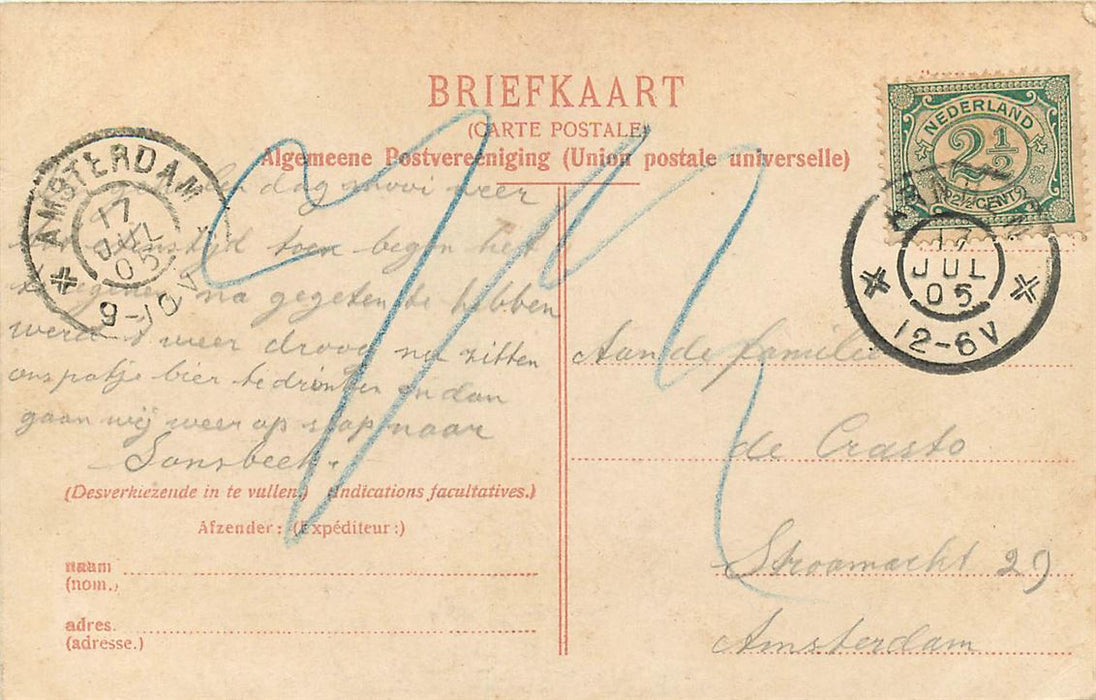 BRIEFKAART
(CARTE POSTALE)
Algemeene Postvereeniging (Union postale universelle)
NEDERLAND
2½
2½CENT2½
17
JUL
05
12-6V
AMSTERDAM
17
JUL
05
9-10V
dag mooi weer
toen begon het
na gegeten te hebben
werd t weer droog nu zitten
ons potje bier te drinken en dan
gaan wij weer op stap naar
Sonsbeek.
(Desverkiezende in te vullen.) (Indications facultatives.)
Afzender: (Expéditeur:)
naam
(nom.)
adres.
(adresse.)
Aan de familie
de Crasto
Stroomarkt 29
Amsterdam